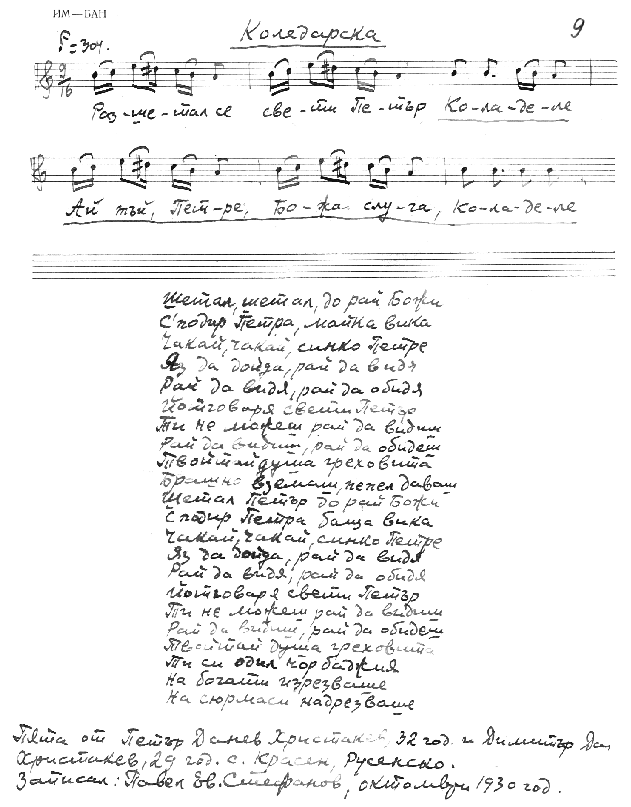 ИМ—БАН
Коледарска
9
Раз-ше-тал се све-ти Пе-тър Ко-ла-де-ле
Ай тъй, Пет-ре, Бо-жа слу-га, Ко-ла-де-ле
Шетал, шетал, до рай Божи
С'подир Петра, майка вика
Чакай, чакай, синко Петре
Яз да дойда, рай да видя
Рай да видя, рай да обидя
Йотговаря свети Петър
Ти не можеш рай да видиш
Рай да видиш, рай да обидеш
Твойтай душа греховита
Брашно вземаш, пепел даваш
Шетал Петър до рай Божи
С'подир Петра баща вика
Чакай, чакай, синко Петре
Яз да дойда, рай да видя
Рай да видя, рай да обидя
Йотговаря свети Петър
Ти не можеш рай да видиш
Рай да видиш, рай да обидеш
Твойтай душа греховита
Ти си одил чорбаджия
На богати изрезваше
На сюрмаси надрезваше
Пята от Петър Данев Христакев, 32 год. и Димитър Да
Христакев, 29 год. с. Красен, Русенско.
Записал: Павел Ев. Стефанов, октомври 1930 год.